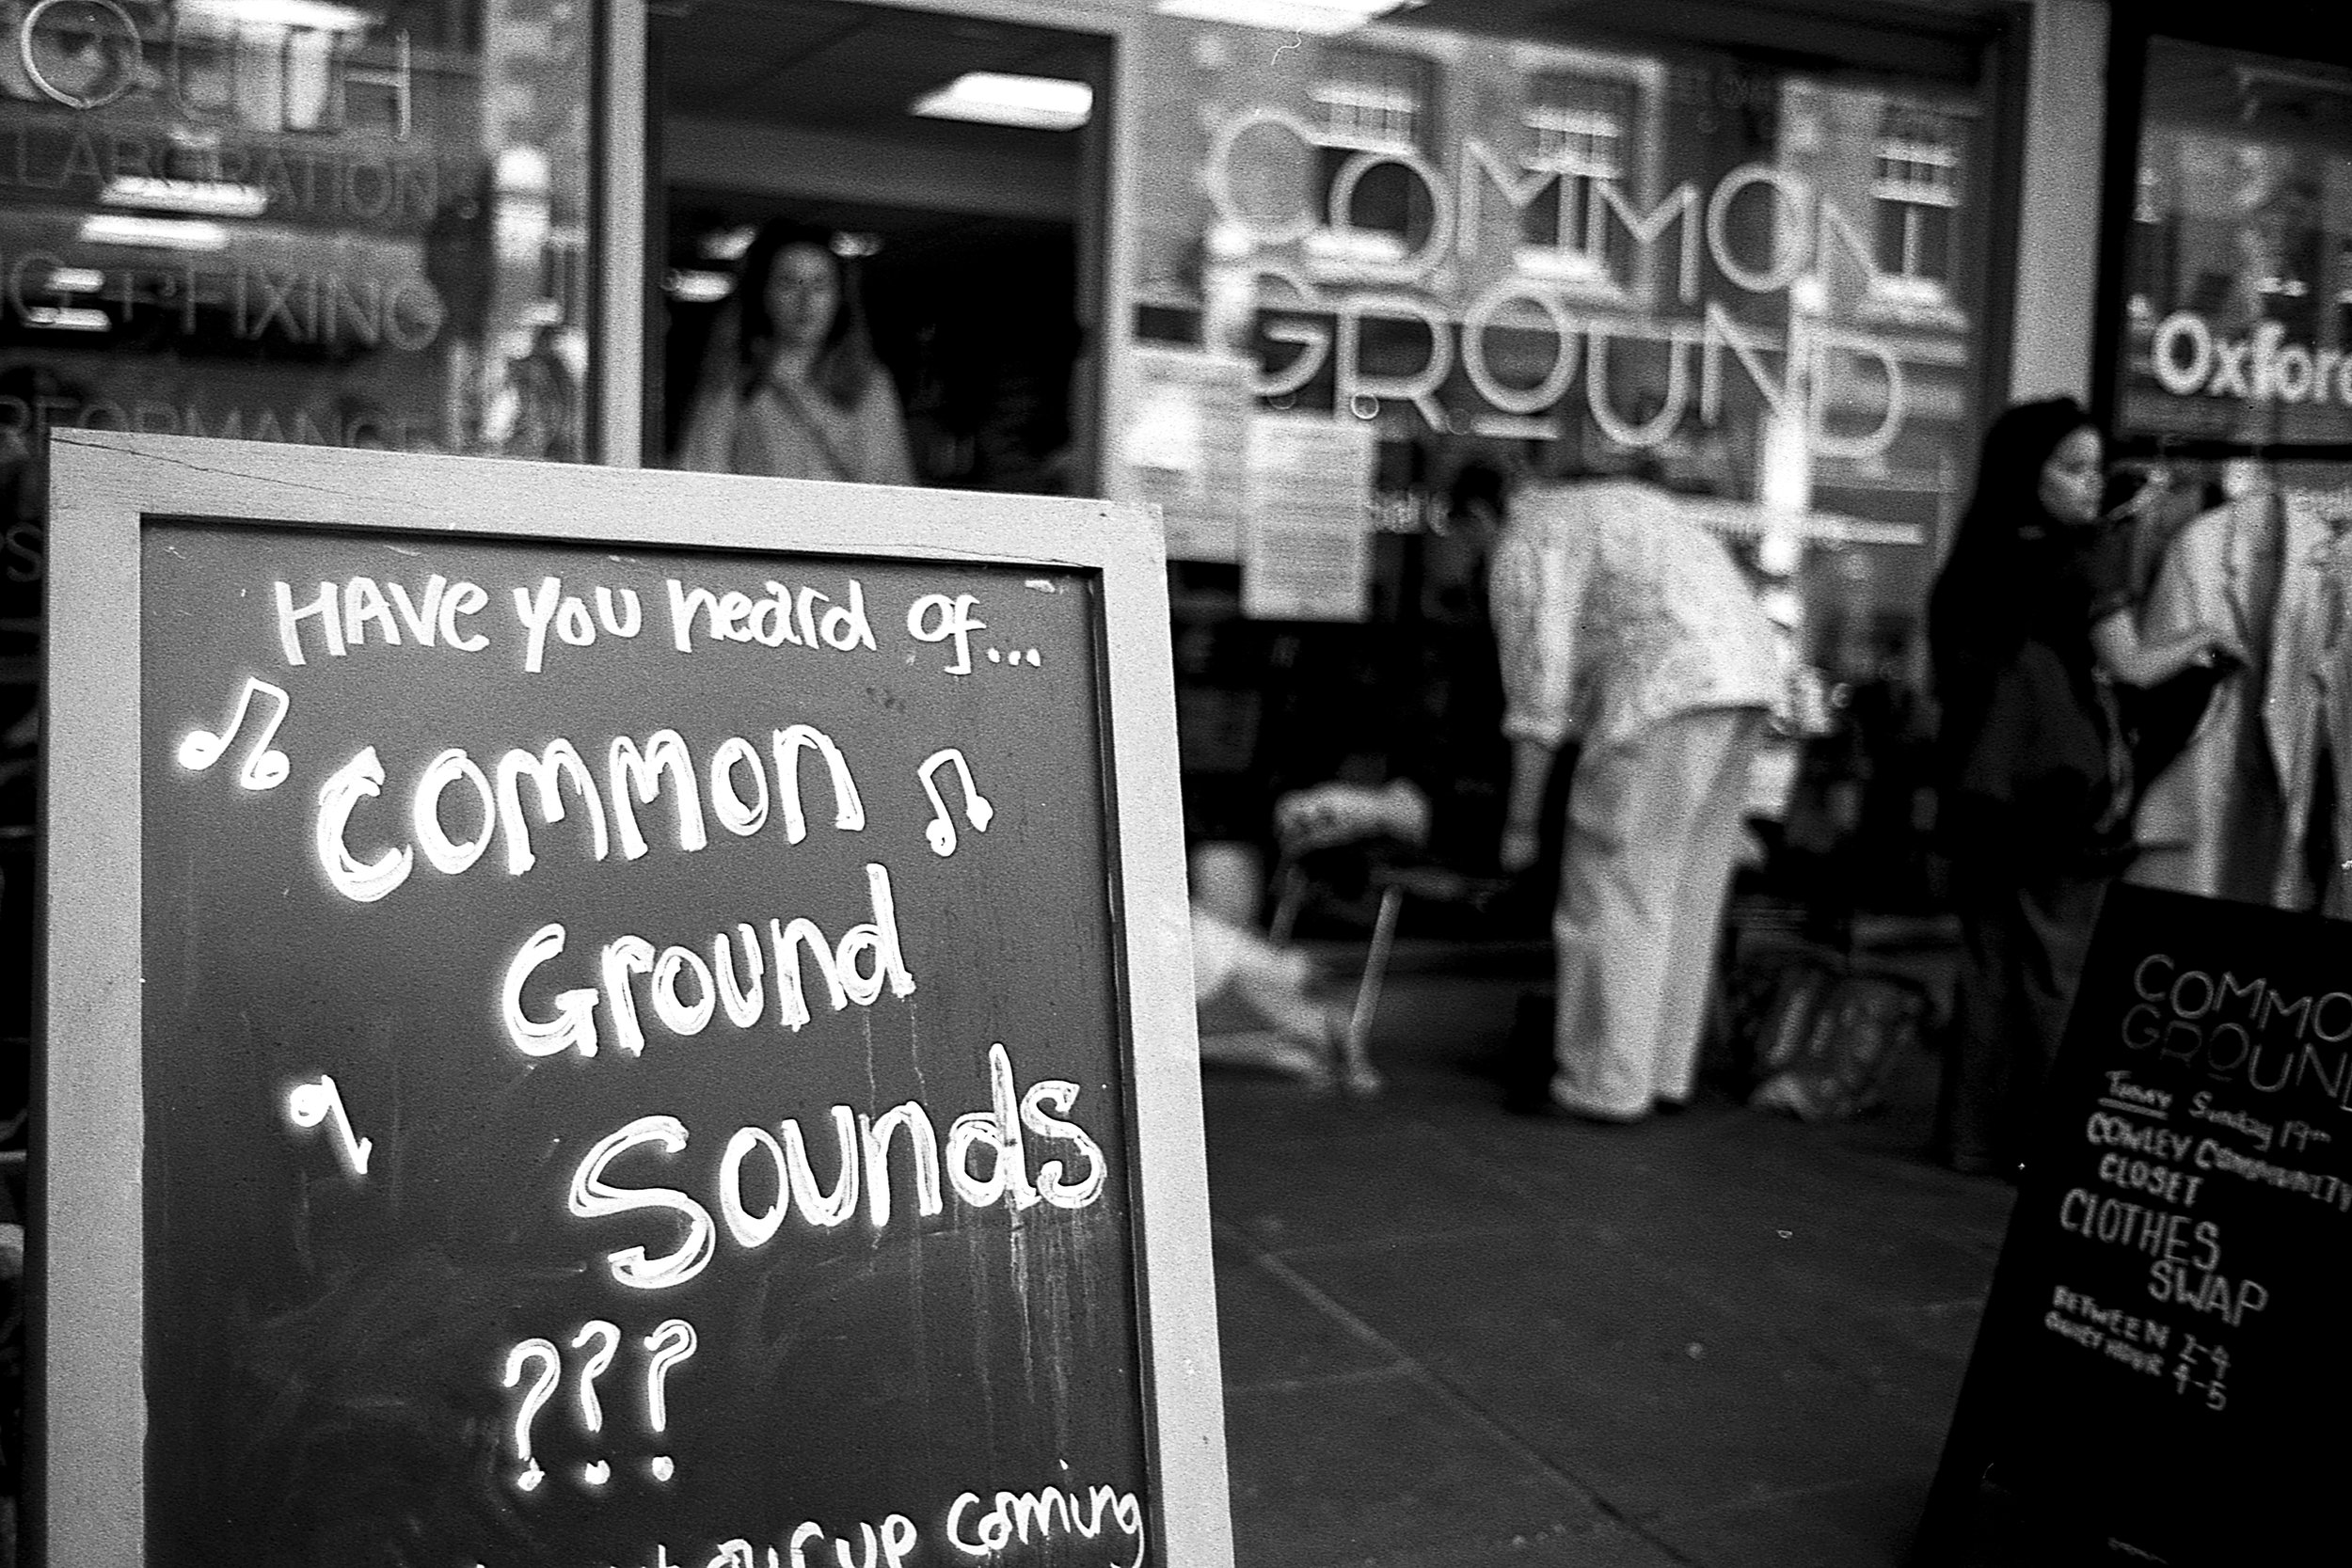 OUTH
LABORATION
G + FIXING
RFORMANCE
PS
COMMON
GROUND
Oxford
HAVe you heard of...
Common
Ground
Sounds
???
our up coming
COMMO
GROUND
Today Sunday 19th
COWLEY COMMUNITY
CLOSET
CLOTHES
SWAP
BETWEEN 2-4
QUIET HOUR 4-5